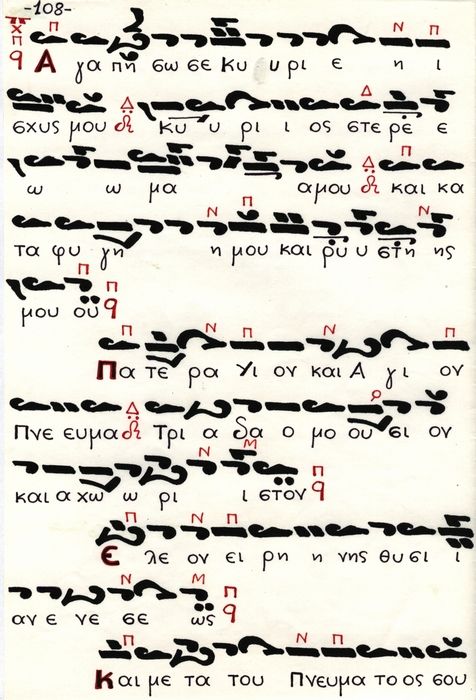 -108-
Α γα πη σω σε Κυ υ ρι ε η ι
σχυς μου κυ υ ρι ι ος στε ρε ε
ω ω μα α μου και κα
τα φυ γη η μου και ρυ υ στη ης
μου ου
Πα τε ρα Υι ον και Α γι ον
Πνε ευμα Τρι α δα ο μο ου σι ον
και α χω ω ρι ι στον
Ε λε ον ει ρη η νης θυ σι ι
αν ε νε σε ως
Και με τα του Πνευμα το ος σου